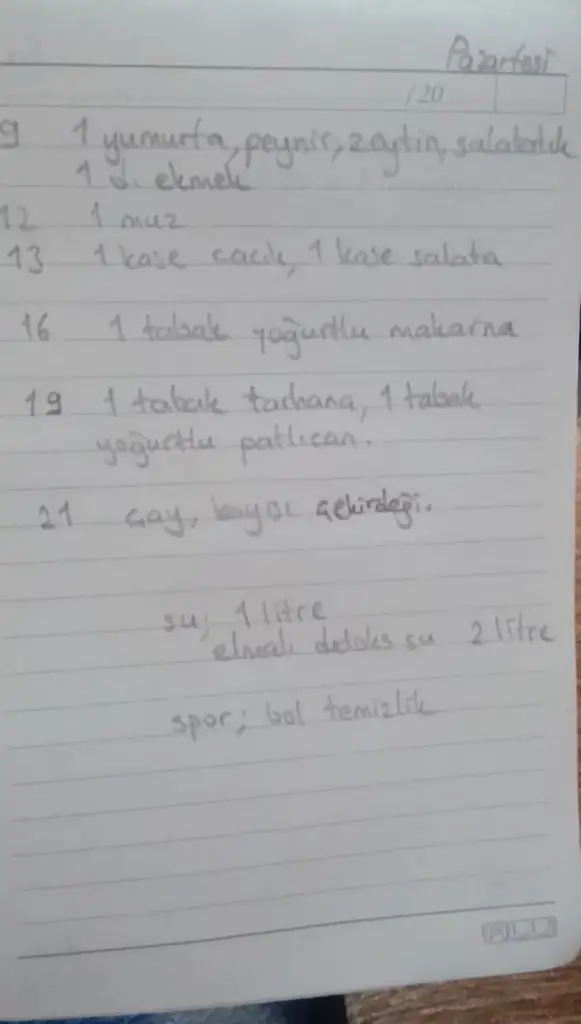 Pazartesi
/20
9 1 yumurta, peynir, zeytin, salatalık
1 d. ekmek
12 1 muz
13 1 kase cacık, 1 kase salata
16 1 tabak yoğurtlu makarna
19 1 tabak tarhana, 1 tabak
yoğurtlu patlıcan.
21 çay, kayısı çekirdeği.
su; 1 litre
elmalı detoks su 2 litre
spor; bol temizlik